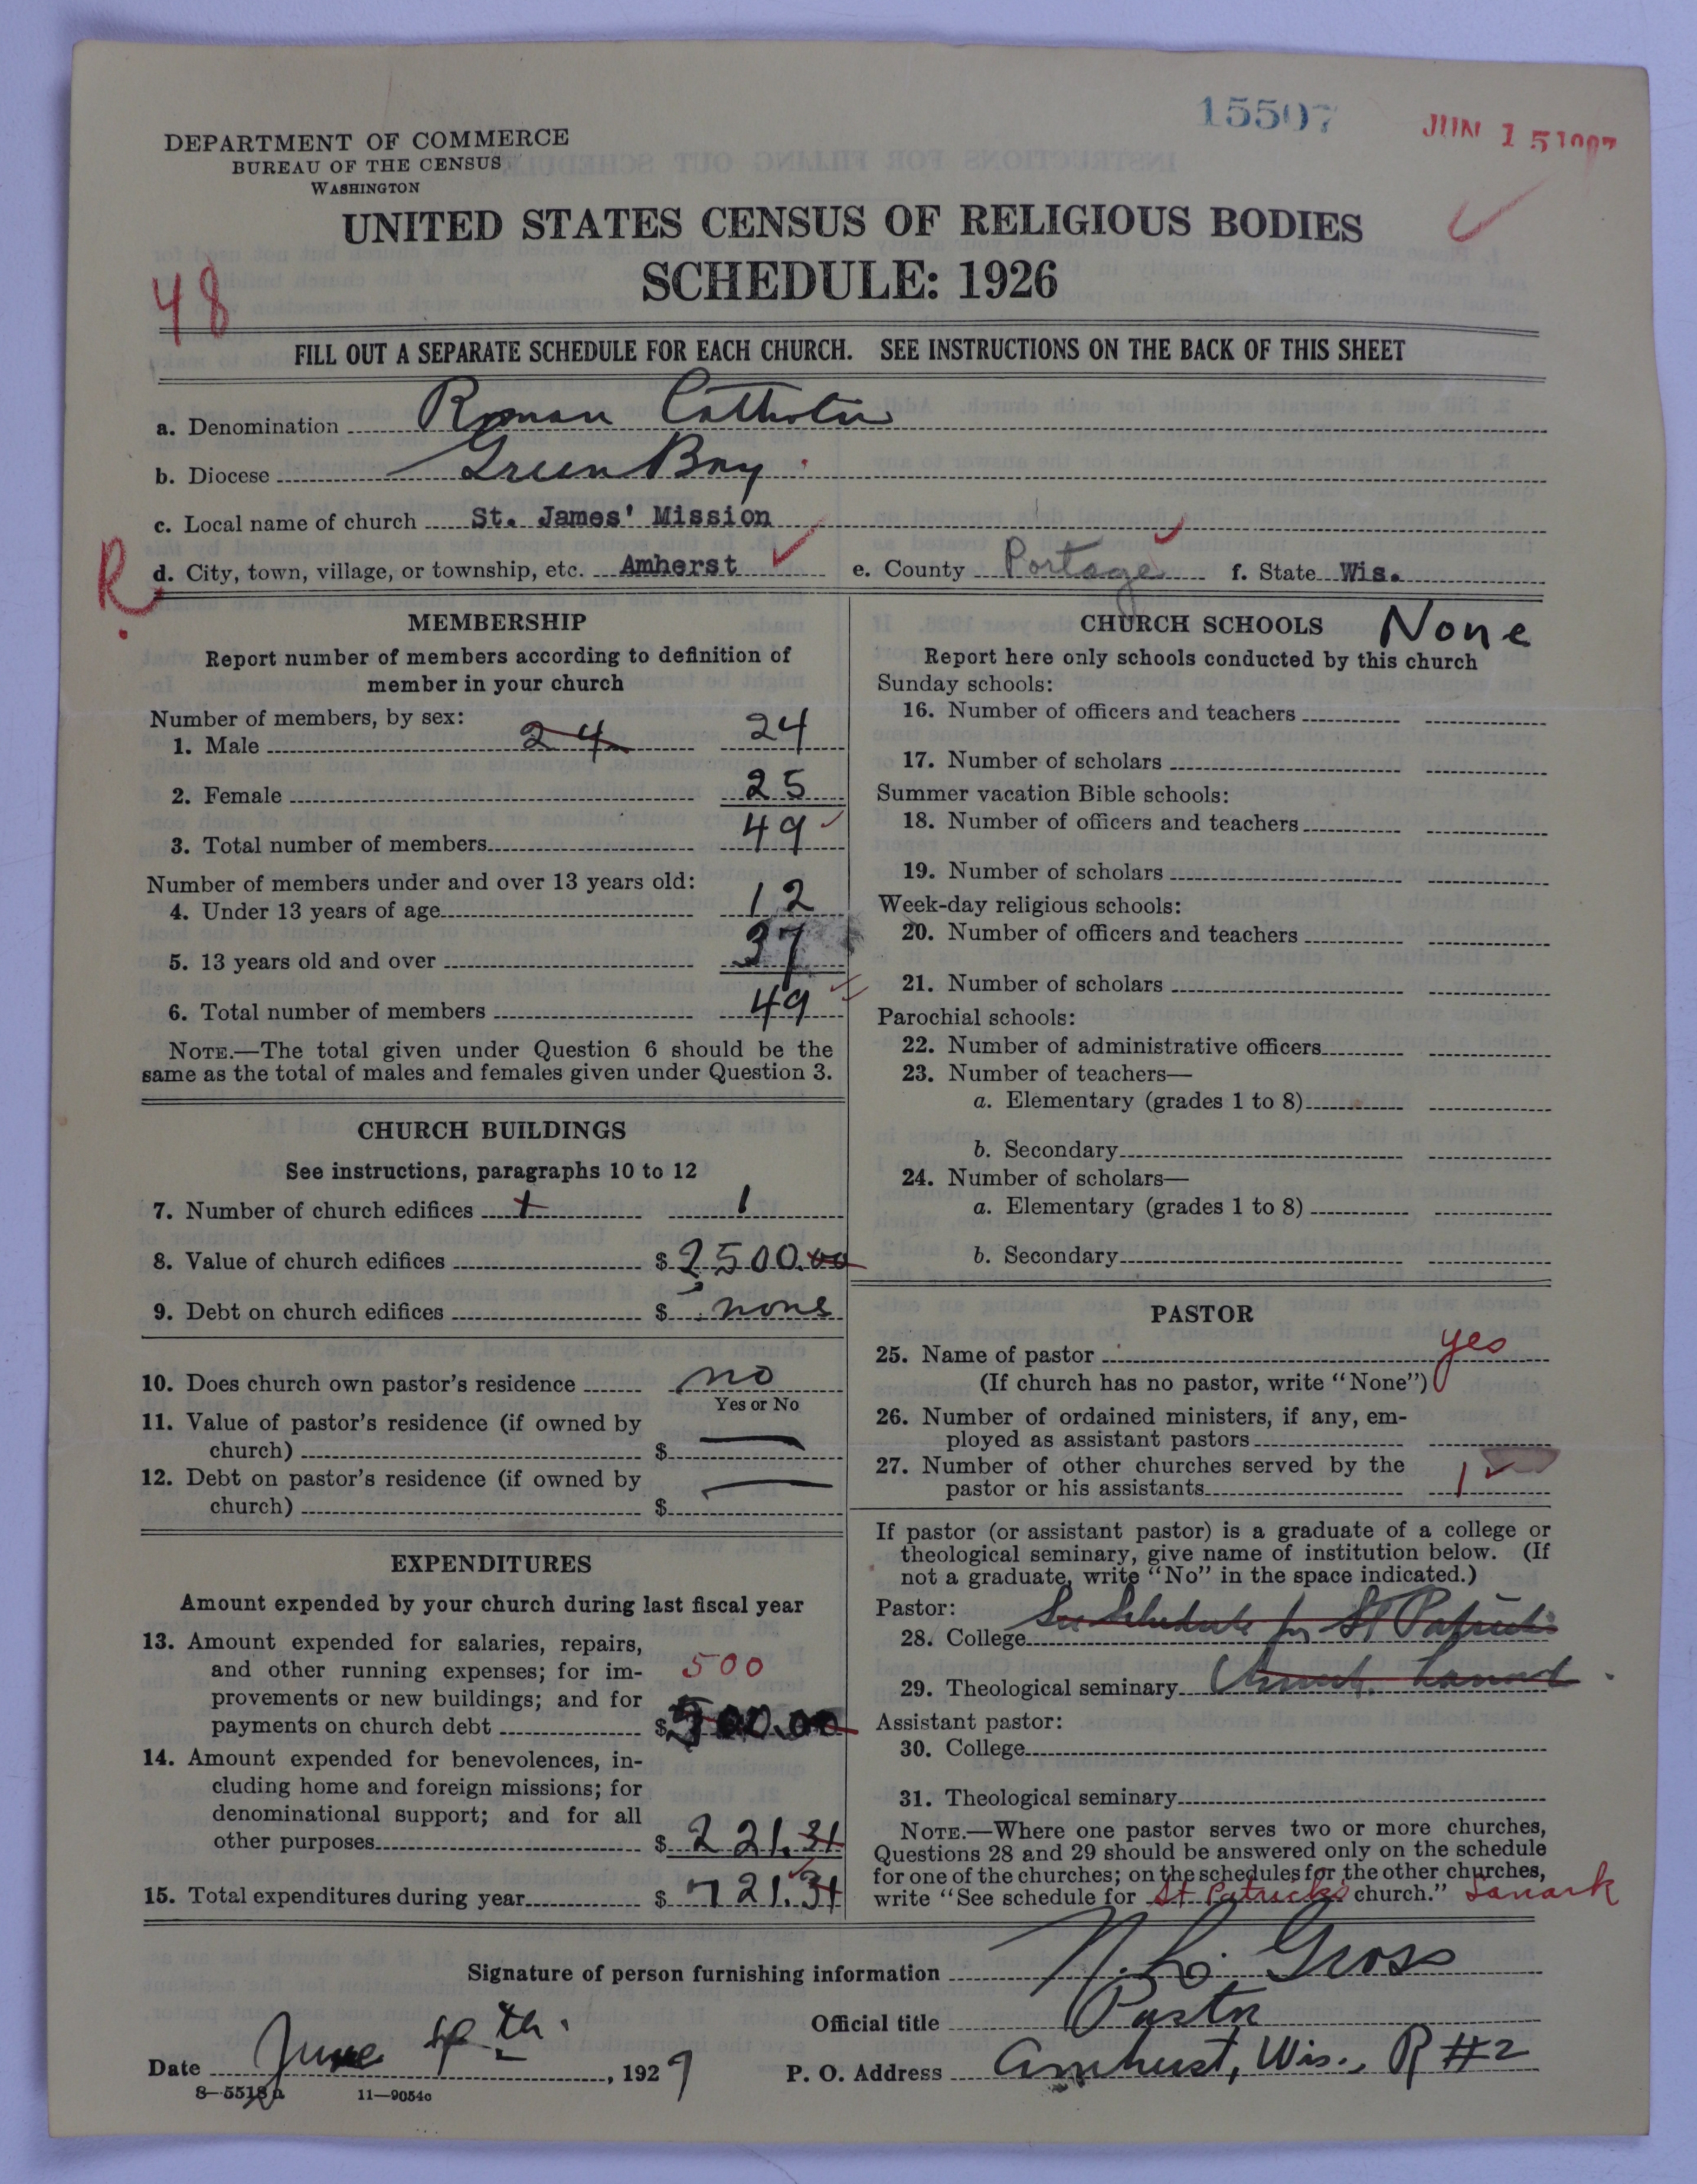 15507
JUN 15 1927
DEPARTMENT OF COMMERCE
BUREAU OF THE CENSUS
WASHINGTON
UNITED STATES CENSUS OF RELIGIOUS BODIES
SCHEDULE: 1926
48
FILL OUT A SEPARATE SCHEDULE FOR EACH CHURCH. SEE INSTRUCTIONS ON THE BACK OF THIS SHEET
a. Denomination Roman Catholic
b. Diocese Green Bay
c. Local name of church St. James' Mission
R. d. City, town, village, or township, etc. Amherst e. County Portage f. State Wis.
MEMBERSHIP
Report number of members according to definition of
member in your church
Number of members, by sex:
1. Male 24 24
2. Female 25
3. Total number of members 49
Number of members under and over 13 years old:
4. Under 13 years of age 12
5. 13 years old and over 37
6. Total number of members 49
NOTE.—The total given under Question 6 should be the
same as the total of males and females given under Question 3.
CHURCH BUILDINGS
See instructions, paragraphs 10 to 12
7. Number of church edifices 1 1
8. Value of church edifices $2500.00
9. Debt on church edifices $ none
10. Does church own pastor's residence no
Yes or No
11. Value of pastor's residence (if owned by
church) $ —
12. Debt on pastor's residence (if owned by
church) $ —
EXPENDITURES
Amount expended by your church during last fiscal year
13. Amount expended for salaries, repairs,
and other running expenses; for im- 500
provements or new buildings; and for
payments on church debt $500.00
14. Amount expended for benevolences, in-
cluding home and foreign missions; for
denominational support; and for all
other purposes $221.31
15. Total expenditures during year $721.31
CHURCH SCHOOLS None
Report here only schools conducted by this church
Sunday schools:
16. Number of officers and teachers
17. Number of scholars
Summer vacation Bible schools:
18. Number of officers and teachers
19. Number of scholars
Week-day religious schools:
20. Number of officers and teachers
21. Number of scholars
Parochial schools:
22. Number of administrative officers
23. Number of teachers—
a. Elementary (grades 1 to 8)
b. Secondary
24. Number of scholars—
a. Elementary (grades 1 to 8)
b. Secondary
PASTOR
25. Name of pastor yes
(If church has no pastor, write "None")
26. Number of ordained ministers, if any, em-
ployed as assistant pastors
27. Number of other churches served by the
pastor or his assistants 1
If pastor (or assistant pastor) is a graduate of a college or
theological seminary, give name of institution below. (If
not a graduate, write "No" in the space indicated.)
Pastor:
28. College See Schedule for St Patricks
29. Theological seminary Church. Lanark
Assistant pastor:
30. College
31. Theological seminary
NOTE.—Where one pastor serves two or more churches,
Questions 28 and 29 should be answered only on the schedule
for one of the churches; on the schedules for the other churches,
write "See schedule for St Patricks church." Lanark
Signature of person furnishing information N. L. Gross
Official title Pastor
Date June th. , 1927 P. O. Address Amherst, Wis., R #2
8—5518a 11—9054c